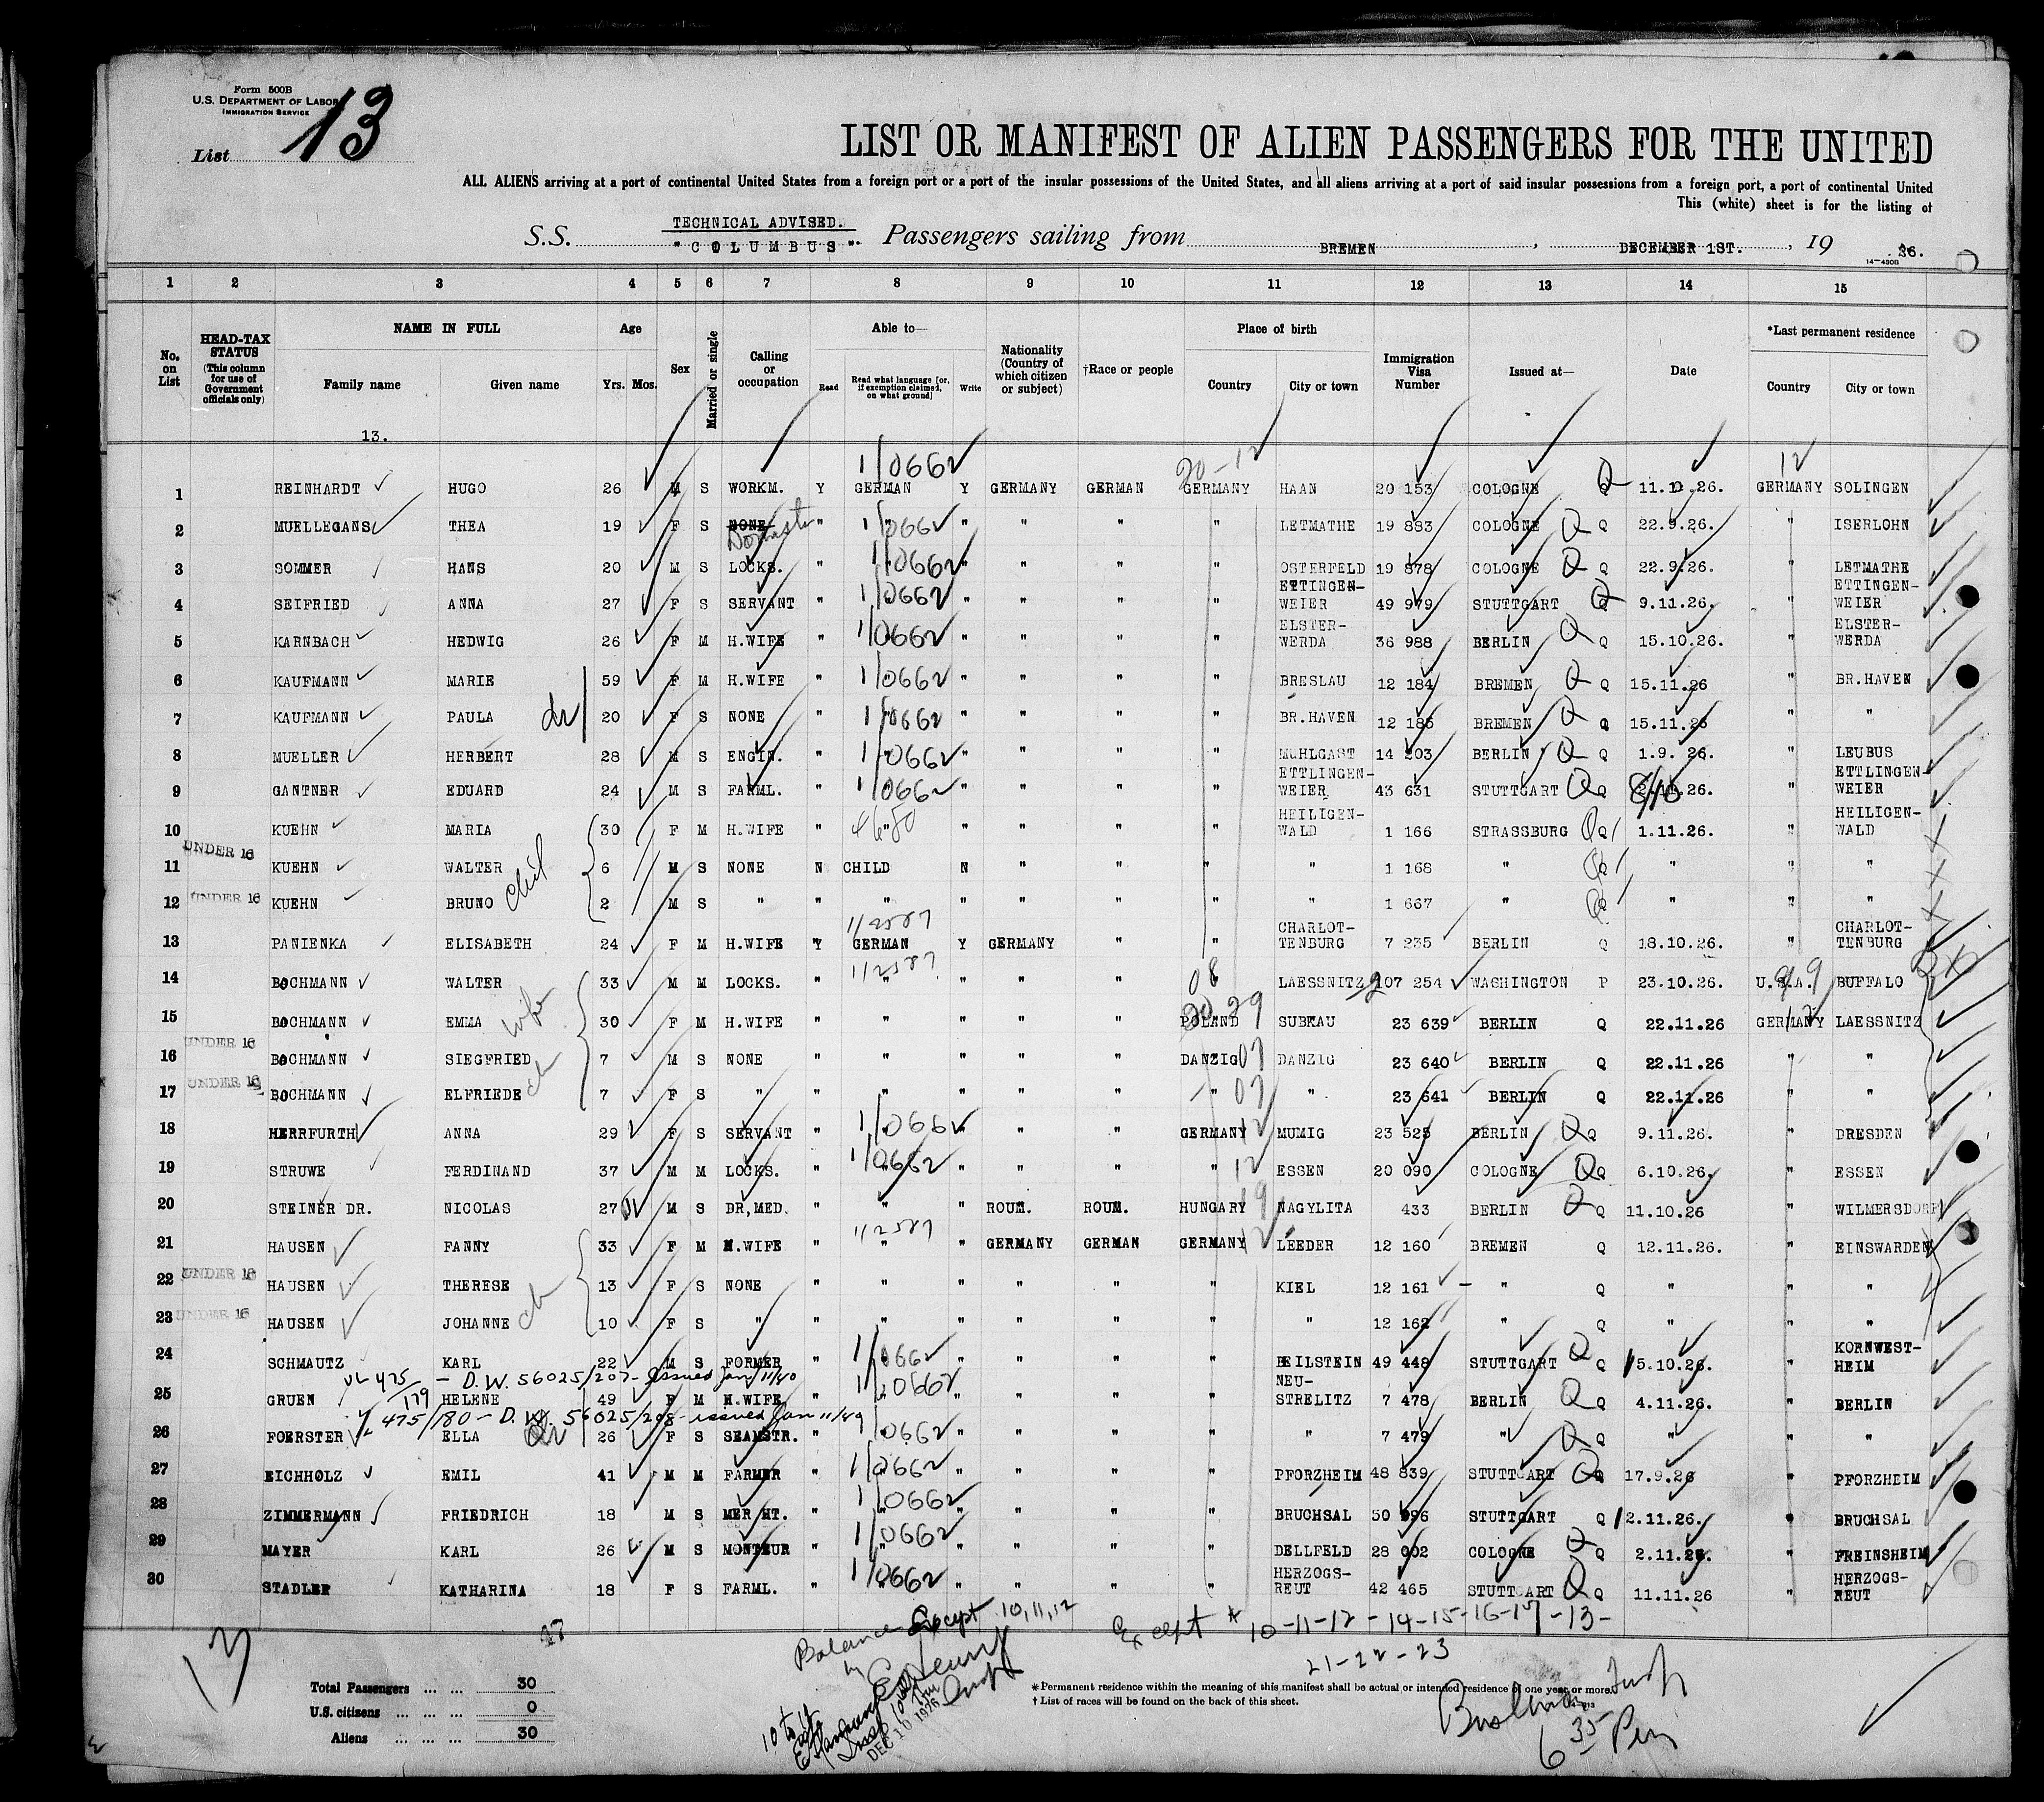 Form 500B
U.S. DEPARTMENT OF LABOR
IMMIGRATION SERVICE
List 13
LIST OR MANIFEST OF ALIEN PASSENGERS FOR THE UNITED
ALL ALIENS arriving at a port of continental United States from a foreign port or a port of the insular possessions of the United States, and all aliens arriving at a port of said insular possessions from a foreign port, a port of continental United
This (white) sheet is for the listing of
TECHNICAL ADVISED.
S.S. "COLUMBUS" Passengers sailing from BREMEN, DECEMBER 1ST., 19 26.
14-430B
1 2 3 4 5 6 7 8 9 10 11 12 13 14 15
No. on List HEAD-TAX STATUS (This column for use of Government officials only) NAME IN FULL Family name Given name Age Yrs. Mos. Sex Married or single Calling or occupation Able to— Read Read what language [or, if exemption claimed, on what ground] Write Nationality (Country of which citizen or subject) †Race or people Place of birth Country City or town Immigration Visa Number Issued at— Date *Last permanent residence Country City or town
13.
1/0662 20-12 12
1 REINHARDT HUGO 26 M S WORKM. Y GERMAN Y GERMANY GERMAN GERMANY HAAN 20 153 COLOGNE Q 11.26. GERMANY SOLINGEN
2 MUELLEGANS THEA 19 F S NONE " 1/0662 " " " " LETMATHE 19 883 COLOGNE Q Q 22.9.26. " ISERLOHN
Domestic
3 SOMMER HANS 20 M S LOCKS. " 1/0662 " " " " OSTERFELD 19 878 COLOGNE Q Q 22.9.26. " LETMATHE
4 SEIFRIED ANNA 27 F S SERVANT " 1/0662 " " " " ETTINGEN-WEIER 49 979 STUTTGART Q 9.11.26. " ETTINGEN-WEIER
5 KARNBACH HEDWIG 26 F M H.WIFE " 1/0662 " " " " ELSTER-WERDA 36 988 BERLIN Q Q 15.10.26. " ELSTER-WERDA
6 KAUFMANN MARIE 59 F M H.WIFE " 1/0662 " " " " BRESLAU 12 184 BREMEN Q Q 15.11.26 " BR.HAVEN
7 KAUFMANN PAULA 20 F S NONE " 1/0662 " " " " BR.HAVEN 12 185 BREMEN Q Q 15.11.26 " "
8 MUELLER HERBERT 28 M S ENGIN. " 1/0662 " " " " MUHLGAST 14 203 BERLIN Q Q 1.9.26. " LEUBUS
9 GANTNER EDUARD 24 M S FARML. " 1/0662 " " " " ETTLINGEN-WEIER 43 631 STUTTGART Q Q 8/10 26. " ETTLINGEN-WEIER
10 KUEHN MARIA 30 F M H.WIFE " " " " " HEILIGEN-WALD 1 166 STRASSBURG Q 1.11.26. " HEILIGEN-WALD
UNDER 16
11 KUEHN WALTER 6 M S NONE N CHILD N " " " " 1 168 " Q " " "
UNDER 16
12 KUEHN BRUNO 2 M S " " " " " " " " 1 667 " Q " " "
1/2587
13 PANIENKA ELISABETH 24 F M H.WIFE Y GERMAN Y GERMANY " " CHARLOT-TENBURG 7 235 BERLIN Q 18.10.26. " CHARLOT-TENBURG
1/2587
14 BOCHMANN WALTER 33 M M LOCKS. " " " " " 08 LAESSNITZ 107 254 WASHINGTON P 23.10.26. U.S.A. BUFFALO
15 BOCHMANN EMMA wife 30 F M H.WIFE " " " " " POLAND SUBKAU 23 639 BERLIN Q 22.11.26 GERMANY LAESSNITZ
UNDER 16
16 BOCHMANN SIEGFRIED ch 7 M S NONE " " " " " DANZIG DANZIG 23 640 BERLIN Q 22.11.26 " "
UNDER 16
17 BOCHMANN ELFRIEDE 7 F S " " " " " " " " 23 641 BERLIN Q 22.11.26 " "
18 HERRFURTH ANNA 29 F S SERVANT " 1/0662 " " " GERMANY 12 MUMIG 23 525 BERLIN Q Q 9.11.26. " DRESDEN
19 STRUWE FERDINAND 37 M M LOCKS. " 1/0662 " " " " 12 ESSEN 20 090 COLOGNE Q Q 6.10.26. " ESSEN
20 STEINER DR. NICOLAS 27 M S DR,MED. " " " ROUM. ROUM. HUNGARY 19 NAGYLITA 433 BERLIN Q Q 11.10.26 " WILMERSDORF
1/2587
21 HAUSEN FANNY 33 F M H.WIFE " " " GERMANY GERMAN GERMANY 12 LEEDER 12 160 BREMEN Q 12.11.26. " EINSWARDEN
UNDER 16
22 HAUSEN THERESE 13 F S NONE " " " " " " KIEL 12 161 " Q " " "
UNDER 16
23 HAUSEN JOHANNE ch 10 F S " " " " " " " " 12 162 " Q " " "
24 SCHMAUTZ KARL 22 M S FORMER " 1/0662 " " " " BEILSTEIN 49 448 STUTTGART Q Q 15.10.26. " KORNWEST-HEIM
475/179 - D.W. 56025/207 - Issued Jan 11/40
25 GRUEN HELENE 49 F M H.WIFE " 1/0662 " " " " NEU-STRELITZ 7 478 BERLIN Q Q 4.11.26. " BERLIN
475/180 - D.W. 56025/208 - issued Jan 11/40
26 FOERSTER ELLA 26 F S SEAMSTR. " 1/0662 " " " " " 7 479 " Q Q " " "
27 EICHHOLZ EMIL 41 M M FARMER " 1/0662 " " " " PFORZHEIM 48 839 STUTTGART Q 17.9.26 " PFORZHEIM
28 ZIMMERMANN FRIEDRICH 18 M S MER HT. " 1/0662 " " " " BRUCHSAL 50 996 STUTTGART Q 12.11.26. " BRUCHSAL
29 MAYER KARL 26 M S MONTEUR " 1/0662 " " " " DELLFELD 28 002 COLOGNE Q Q 2.11.26. " FREINSHEIM
30 STADLER KATHARINA 18 F S FARML. " 1/0662 " " " " HERZOGS-REUT 42 465 STUTTGART Q Q 11.11.26 " HERZOGS-REUT
Balance Except 10,11,12
by
Except # 10-11-12-14-15-16-17-13-
21-22-23
17
13
Total Passengers ... ... 30
U.S. citizens ... ... ... 0
Aliens ... ... ... 30
*Permanent residence within the meaning of this manifest shall be actual or intended residence of one year or more.
† List of races will be found on the back of this sheet.
DEC 10 1926